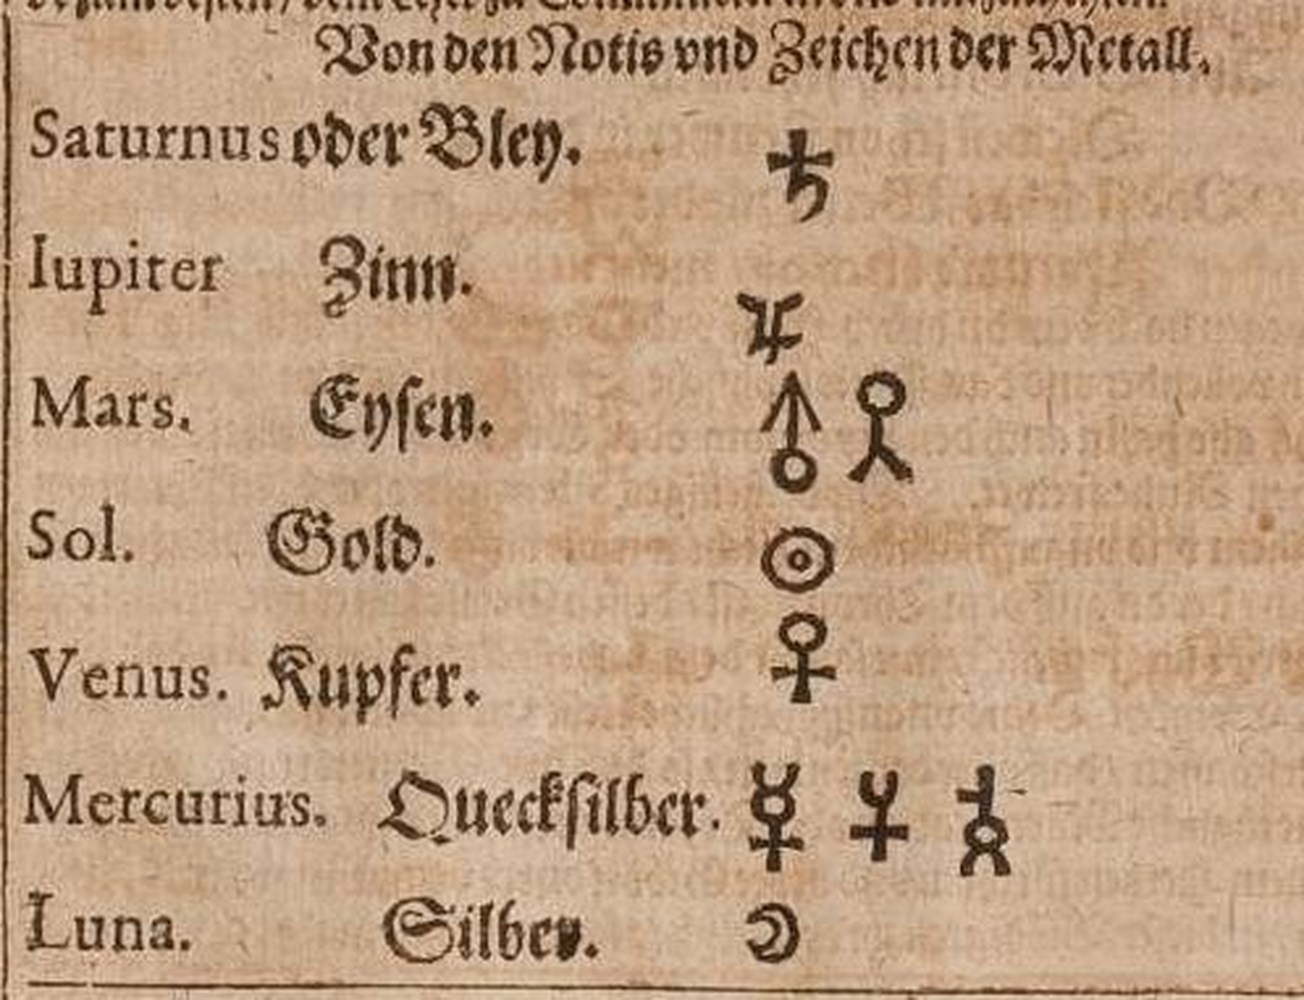 Von den Notis vnd Zeichen der Metall.
Saturnus oder Bley. ♄
Iupiter Zinn. ♃
Mars. Eysen. ♂
Sol. Gold. ☉
Venus. Kupfer. ♀
Mercurius. Queckſilber. ☿
Luna. Silber. ☽